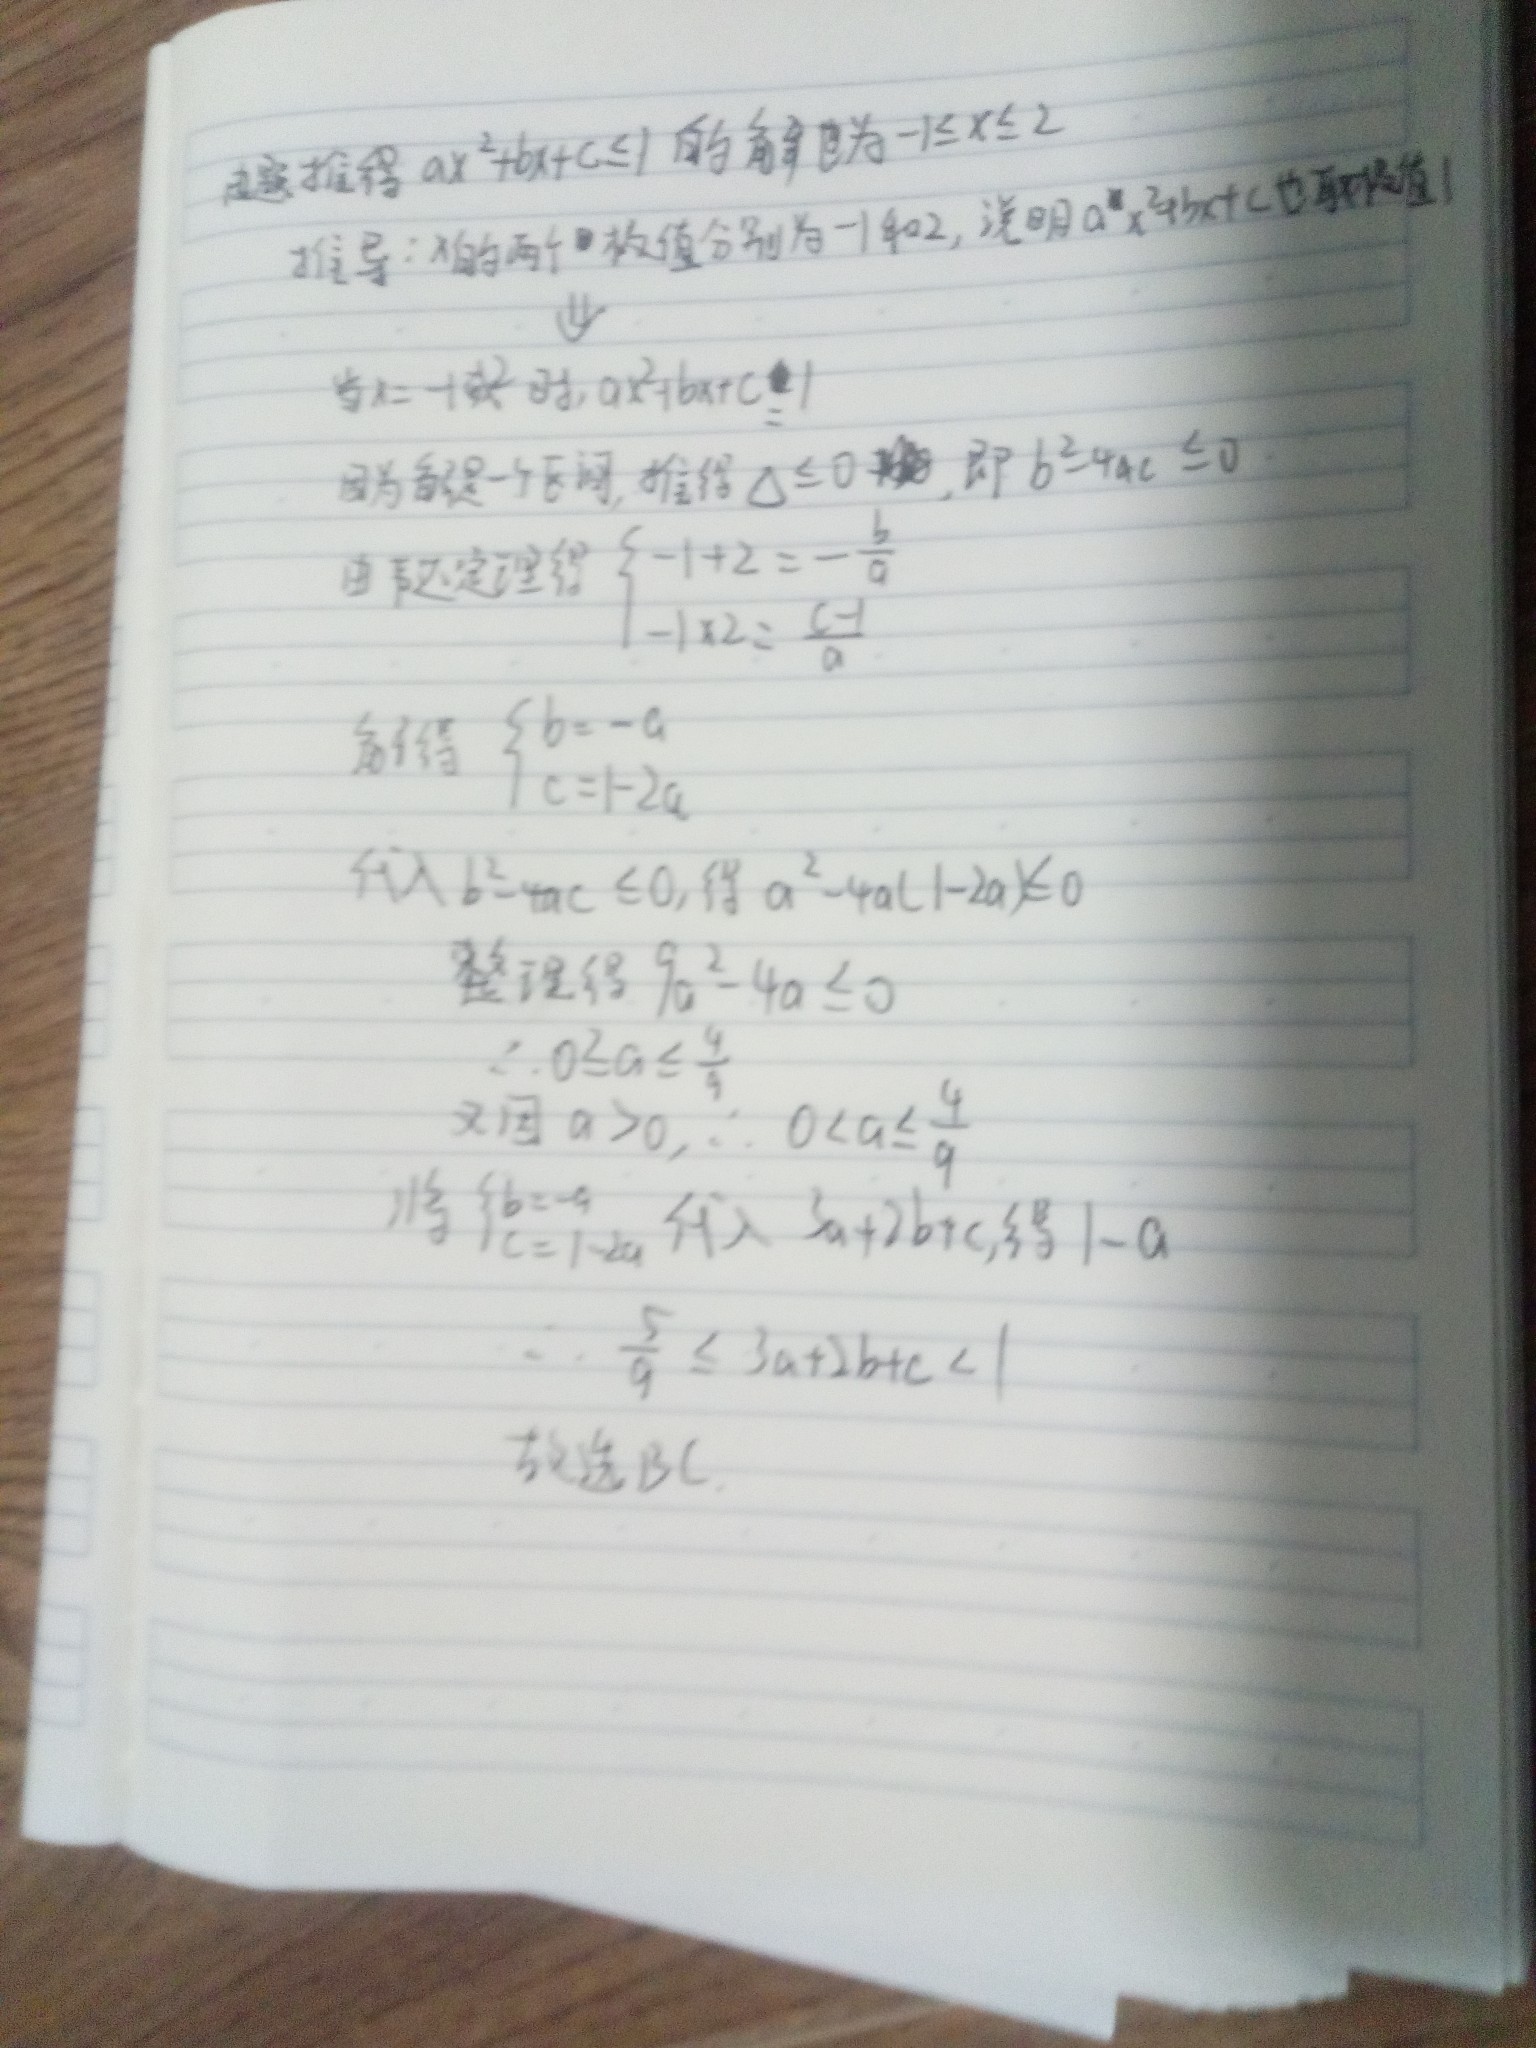 由题推得 ax²+bx+c≤1 的解也为 -1≤x≤2
推导：x的两个 极值分别为-1和2, 说明ax²+bx+c也取极值1
⇓
当x=-1或2时, ax²+bx+c=1
因为解是一个区间, 推得 △≤0, 即 b²-4ac≤0
由韦达定理得 { -1+2 = -b/a
-1×2 = (c-1)/a
解得 { b=-a
c=1-2a
代入 b²-4ac≤0, 得 a²-4a(1-2a)≤0
整理得 9a²-4a≤0
∴ 0≤a≤4/9
又因 a>0, ∴ 0<a≤4/9
将 { b=-a c=1-2a 代入 3a+2b+c, 得 1-a
∴ 5/9 ≤ 3a+2b+c < 1
故选BC.